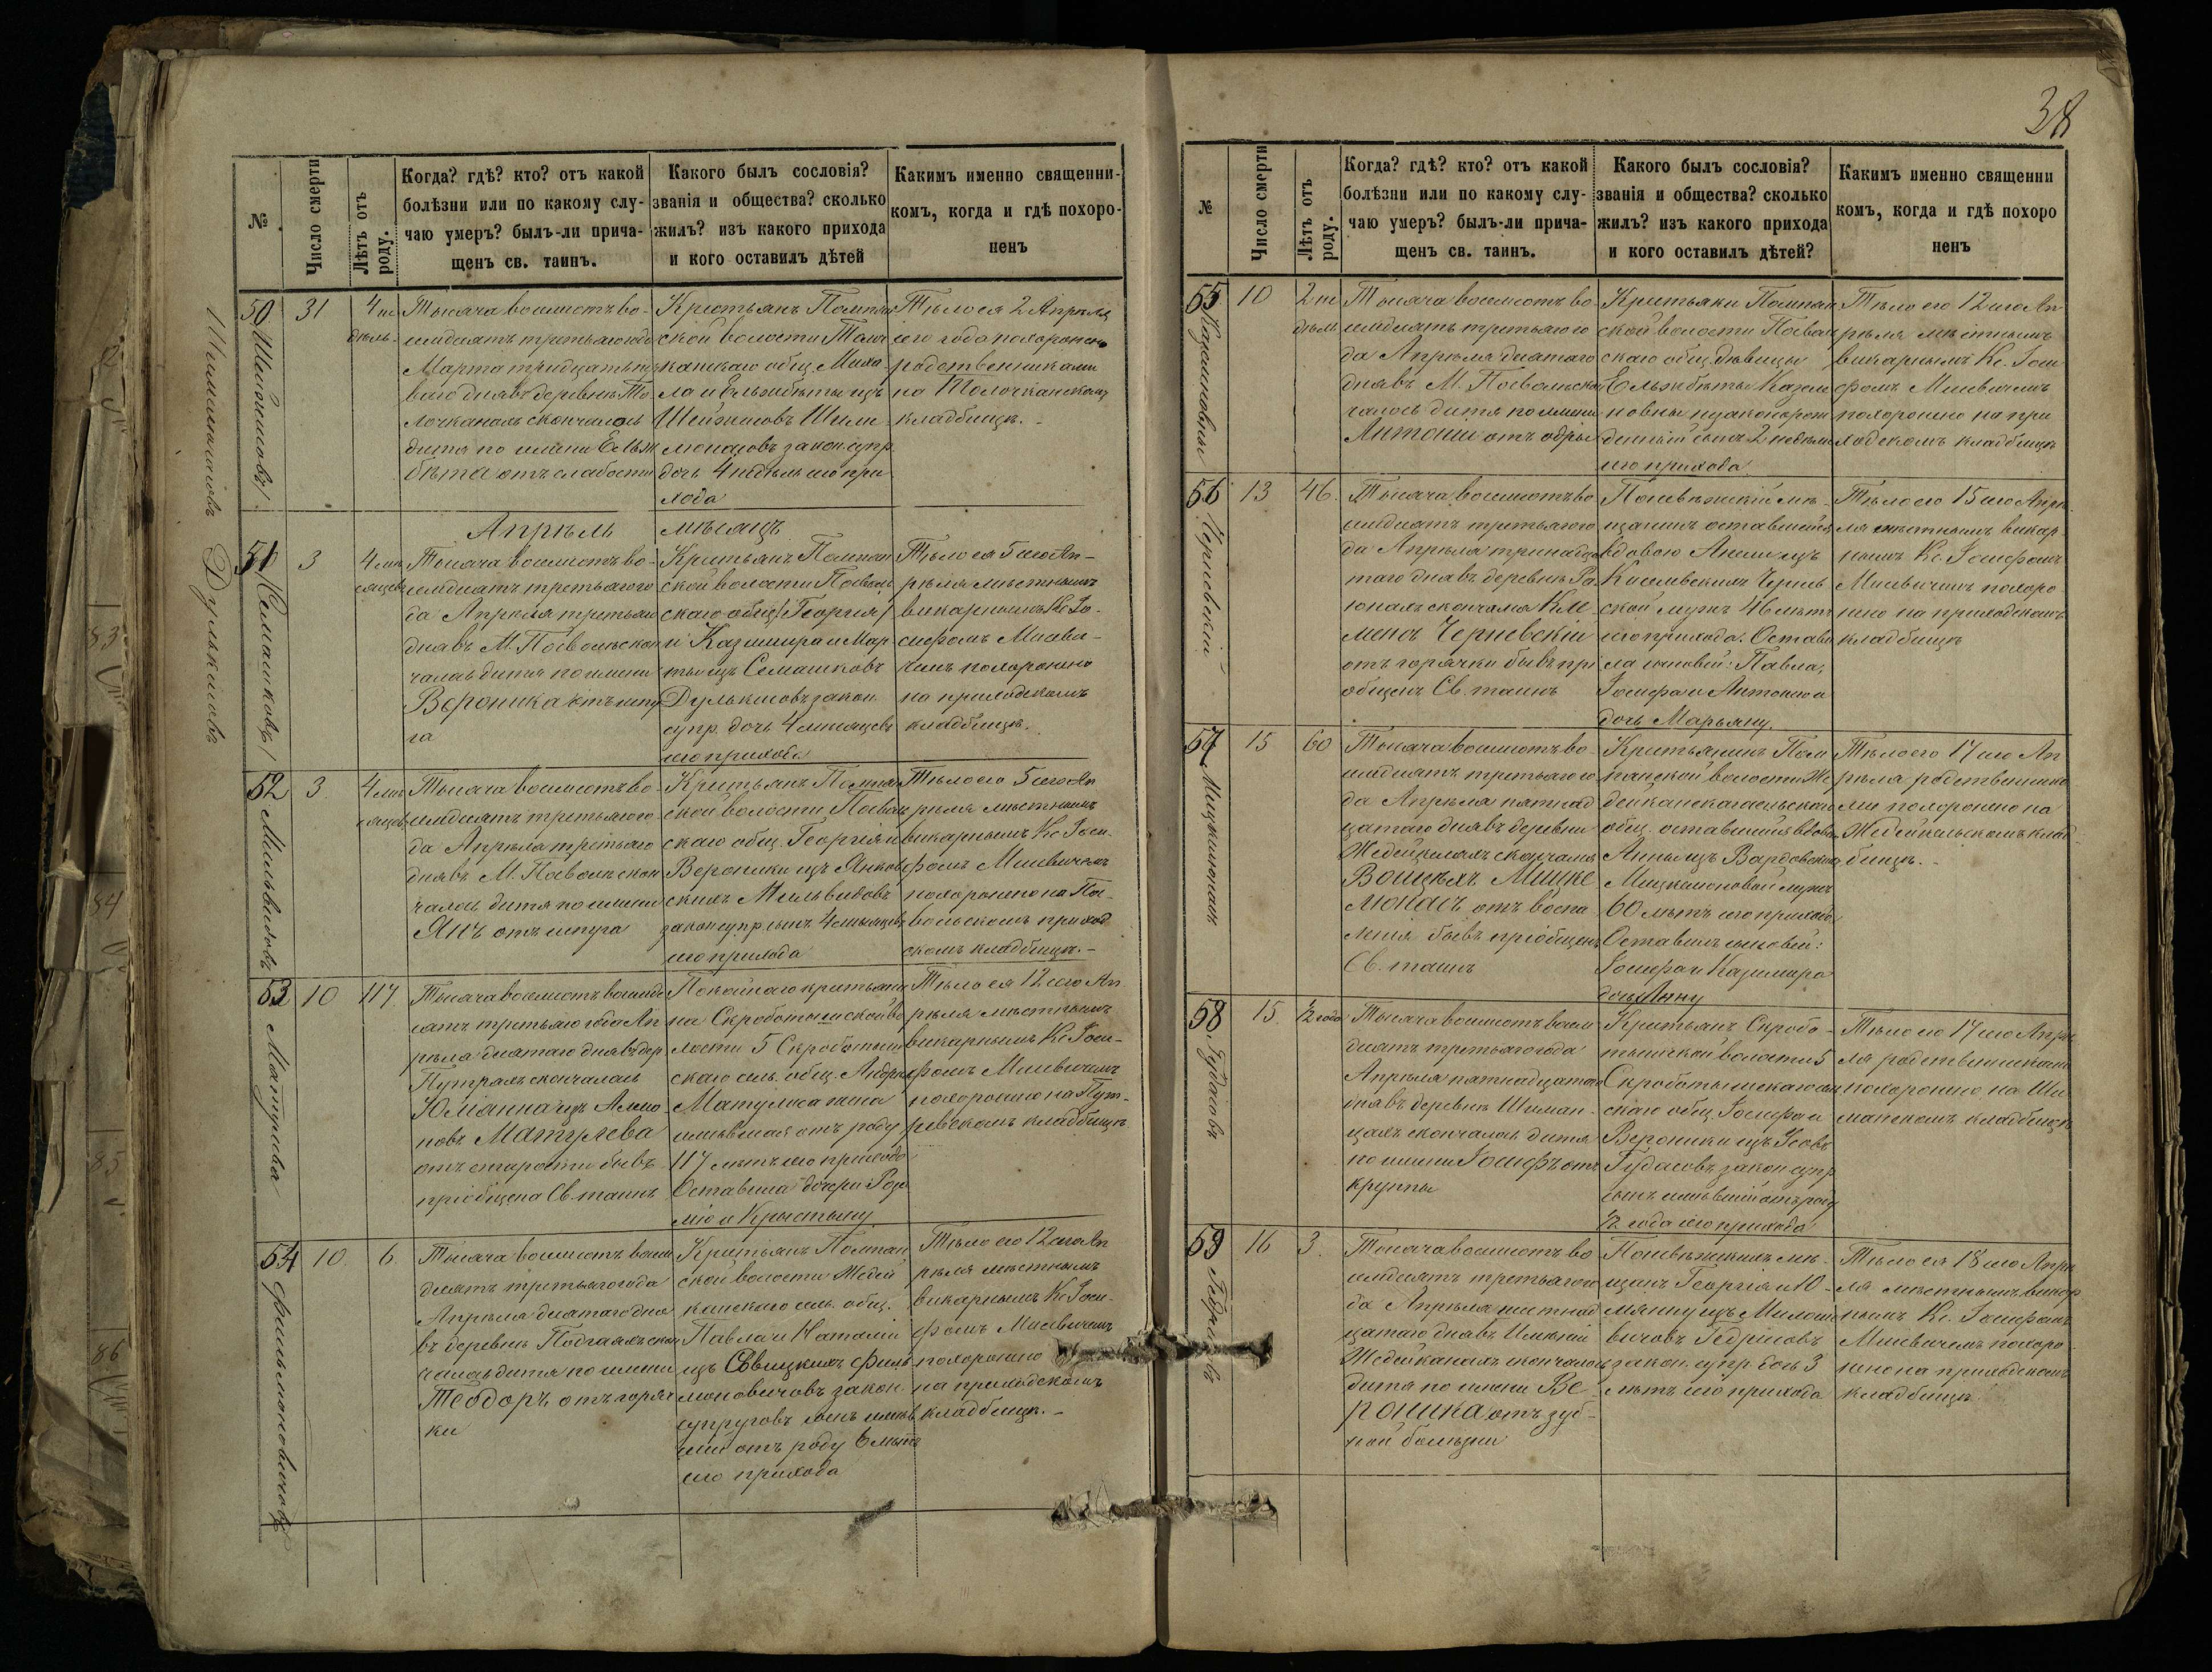 38
№
Число смерти
Лѣтъ отъ роду.
Когда? гдѣ? кто? отъ какой
болѣзни или по какому слу-
чаю умеръ? былъ-ли прича-
щенъ св. таинъ.
Какого былъ сословія?
званія и общества? сколько
жилъ? изъ какого прихода
и кого оставилъ дѣтей
Каким именно священни-
комъ, когда и гдѣ похоро-
ненъ
Шимилюнасовъ
Дулькисовъ
50
31
4 не
дѣль
Тысяча восемсотъ во-
семдесятъ третьяго года
Марта тридцать пер
ваго дня въ деревнѣ То
лочканахъ скончалось
дитя по имени Ельж
бѣта отъ слабости
Крестьянъ Помпян
ской волости Толоч
канскаго общ. Миха
ла и Ельжбѣты изъ
законъ супр
дочь 4 недѣль сего при
хода
Тѣло ея 2 Апрѣля
сего года похоронено
родственниками
на Толочканскомъ
кладбищѣ. -
Апрѣль мѣсяцъ
51
Семашковъ
3
4 мѣ
сяцевъ
Тысяча восемсотъ во-
семдесятъ третьяго го
да Апрѣля третьяго
дня въ М. Посвольскон
чалась дитя по имени
Вероника отъ испу
га
Крестьянъ Помпян
ской волости Посволь
скаго общ. /Георгія/
и Казимира и Мар
ты изъ Семашковъ
Дулькисовъ закон.
супр. дочь 4 мѣсяцевъ
сего прихода
Тѣло ея 5 сего Ап-
рѣля мѣстнымъ
викарнымъ Кс. Іо-
сифомъ Мисеви-
чемъ похоронено
на приходскомъ
кладбищѣ.
52
Мильвидовъ
3.
4 мѣ
сяцевъ
Тысяча восемсотъ во-
семдесятъ третьяго го
да Апрѣля третьяго
дня въ М. Посвольскон
чалось дитя по имени
Янъ отъ испуга
Крестьянъ Помпян
ской волости Посволь
скаго общ. Георгія и
Вероники изъ Янков
скихъ Мильвидовъ
закон супр. сынъ 4 мѣсяцевъ
сего прихода
Тѣло его 5 сего Ап
рѣля мѣстнымъ
викарнымъ Кс. Іоси-
фомъ Мисевичемъ
похоронено на Пос-
вольскомъ приход
скомъ кладбищѣ. -
53
Матулева
10
117.
Тысяча восемсотъ восемде
сятъ третьяго года Ап
рѣля десятаго дня въ дер
Путряхъ скончалась
Юліанна изъ
новъ Матулева
отъ старости бывъ
пріобщена Св. таинъ
Покойнаго крестьяни
на Скроботышской во
лости 5 Скроботыш
скаго сель. общ. Андрея
Матулиса жена
имѣвшая отъ роду
117 лѣтъ сего прихода
Оставила дочери Роза
лію и Крыстыну
Тѣло ея 12 сего Ап
рѣля мѣстнымъ
викарнымъ Кс. Іоси-
фомъ Мисевичемъ
похоронено на Пут-
ревскомъ кладбищѣ
54
Фильмоновичовъ
10.
6
Тысяча восемсотъ восем
десятъ третьяго года
Апрѣля десятаго дня
въ деревнѣ Подгаяхъ скон
чалась дитя по имени
Теодоръ, отъ горяч
ки
Крестьянъ Помпян
ской волости Жедей
канскаго сель. общ.
Павла и Наталіи
изъ Савицкихъ Филь
моновичовъ закон.
супруговъ сынъ имѣв
шій отъ роду 6 лѣтъ
сего прихода
Тѣло его 12 сего Ап
рѣля мѣстнымъ
викарнымъ Кс. Іоси-
фомъ Мисевичемъ
похоронено
на приходскомъ
кладбищѣ. -
№
Число смерти
Лѣтъ отъ роду.
Когда? гдѣ? кто? отъ какой
болѣзни или по какому слу-
чаю умеръ? былъ-ли прича-
щенъ св. таинъ.
Какого былъ сословія?
званія и общества? сколько
жилъ? изъ какого прихода
и кого оставилъ дѣтей?
Какимъ именно священни
комъ, когда и гдѣ похоро
ненъ
55
10
2 не
дѣль
Тысяча восемсотъ во
семдесятъ третьяго го
да Апрѣля десятаго
дня въ М. Посвольскон
чалось дитя по имени
Антоній отъ одры
Крестьянки Помпян
ской волости Посволь
скаго общ. дѣвицы
Ельжбѣты Казими
новны незаконорож
денный сынъ 2 недѣль
сего прихода
Тѣло его 12 сего Ап
рѣля мѣстнымъ
викарнымъ Кс. Іоси
фомъ Мисевичемъ
похоронено на при
ходскомъ кладбищѣ
56
Черневскій
13
46.
Тысяча восемсотъ во
семдесятъ третьяго го
да Апрѣля тринадца
таго дня въ деревнѣ Ра
юнахъ скончался Кле
менсъ Черневскій
отъ горячки бывъ прі
общенъ Св. таинъ
Поневѣжскій мѣ-
щанинъ оставшейся
вдовою Анели изъ
Киселевскихъ Чернев
ской мужъ 46 лѣтъ
сего прихода. Остави
ла сыновей: Павла,
Іосифа и Антонія и
дочь Марьяну.
Тѣло его 15 сего Апрѣ
ля мѣстнымъ викар
нымъ Кс. Іосифомъ
Мисевичемъ похоро
нено на приходскомъ
кладбищѣ
57
Мицкилюнасъ
15
60
Тысяча восемсотъ во-
семдесятъ третьяго го
да Апрѣля пятнад
цатаго дня въ деревни
Жедейкеляхъ скончался
Войцѣхъ Мицке
люнасъ отъ воспа
ленія бывъ пріобщенъ
Св. таинъ
Крестьянинъ Пом
пянской волости Же
дейканскаго сельскаго
общ. оставшейся вдовою
Анны изъ Вардовской
Мицкелюновой мужъ
60 лѣтъ сего прихода
Оставилъ сыновей:
Іосифа и Казимира
дочь Анну
Тѣло его 17 сего Ап
рѣля родственника
ми похоронено на
Жедейкельскомъ клад-
бищѣ. -
58
Гудасовъ
15.
½ года
Тысяча восемсотъ восем
десятъ третьяго года
Апрѣля пятнадцатаго
дня въ деревнѣ Шиман-
цахъ скончалось дитя
по имени Іосифъ отъ
круппы
Крестьянъ Скробо-
тышской волости 5
Скроботышскаго сель
скаго общ. Іосифа и
Вероники изъ
Гудасовъ закон супр
сынъ имѣвшій отъ роду
½ года сего прихода
Тѣло его 17 сего Апрѣ
ля родственниками
похоронено на Ши
манскомъ кладбищѣ
59
Гедрисовъ
16
3.
Тысяча восемсотъ во-
семдесятъ третьяго го
да Апрѣля шестнад
цатаго дня въ Имѣніи
Жедейканахъ скончалось
дитя по имени Ве
роника отъ зуб-
ной болѣзни
Поневѣжскихъ мѣ-
щанъ Георгія и Ю-
ліянны изъ
вичовъ Гедрисовъ
закон. супр. дочь 3
лѣтъ сего прихода
Тѣло ея 18 сего Апрѣ
ля мѣстнымъ викар
нымъ Кс. Іосифомъ
Мисевичемъ похоро
нено на приходскомъ
кладбищѣ